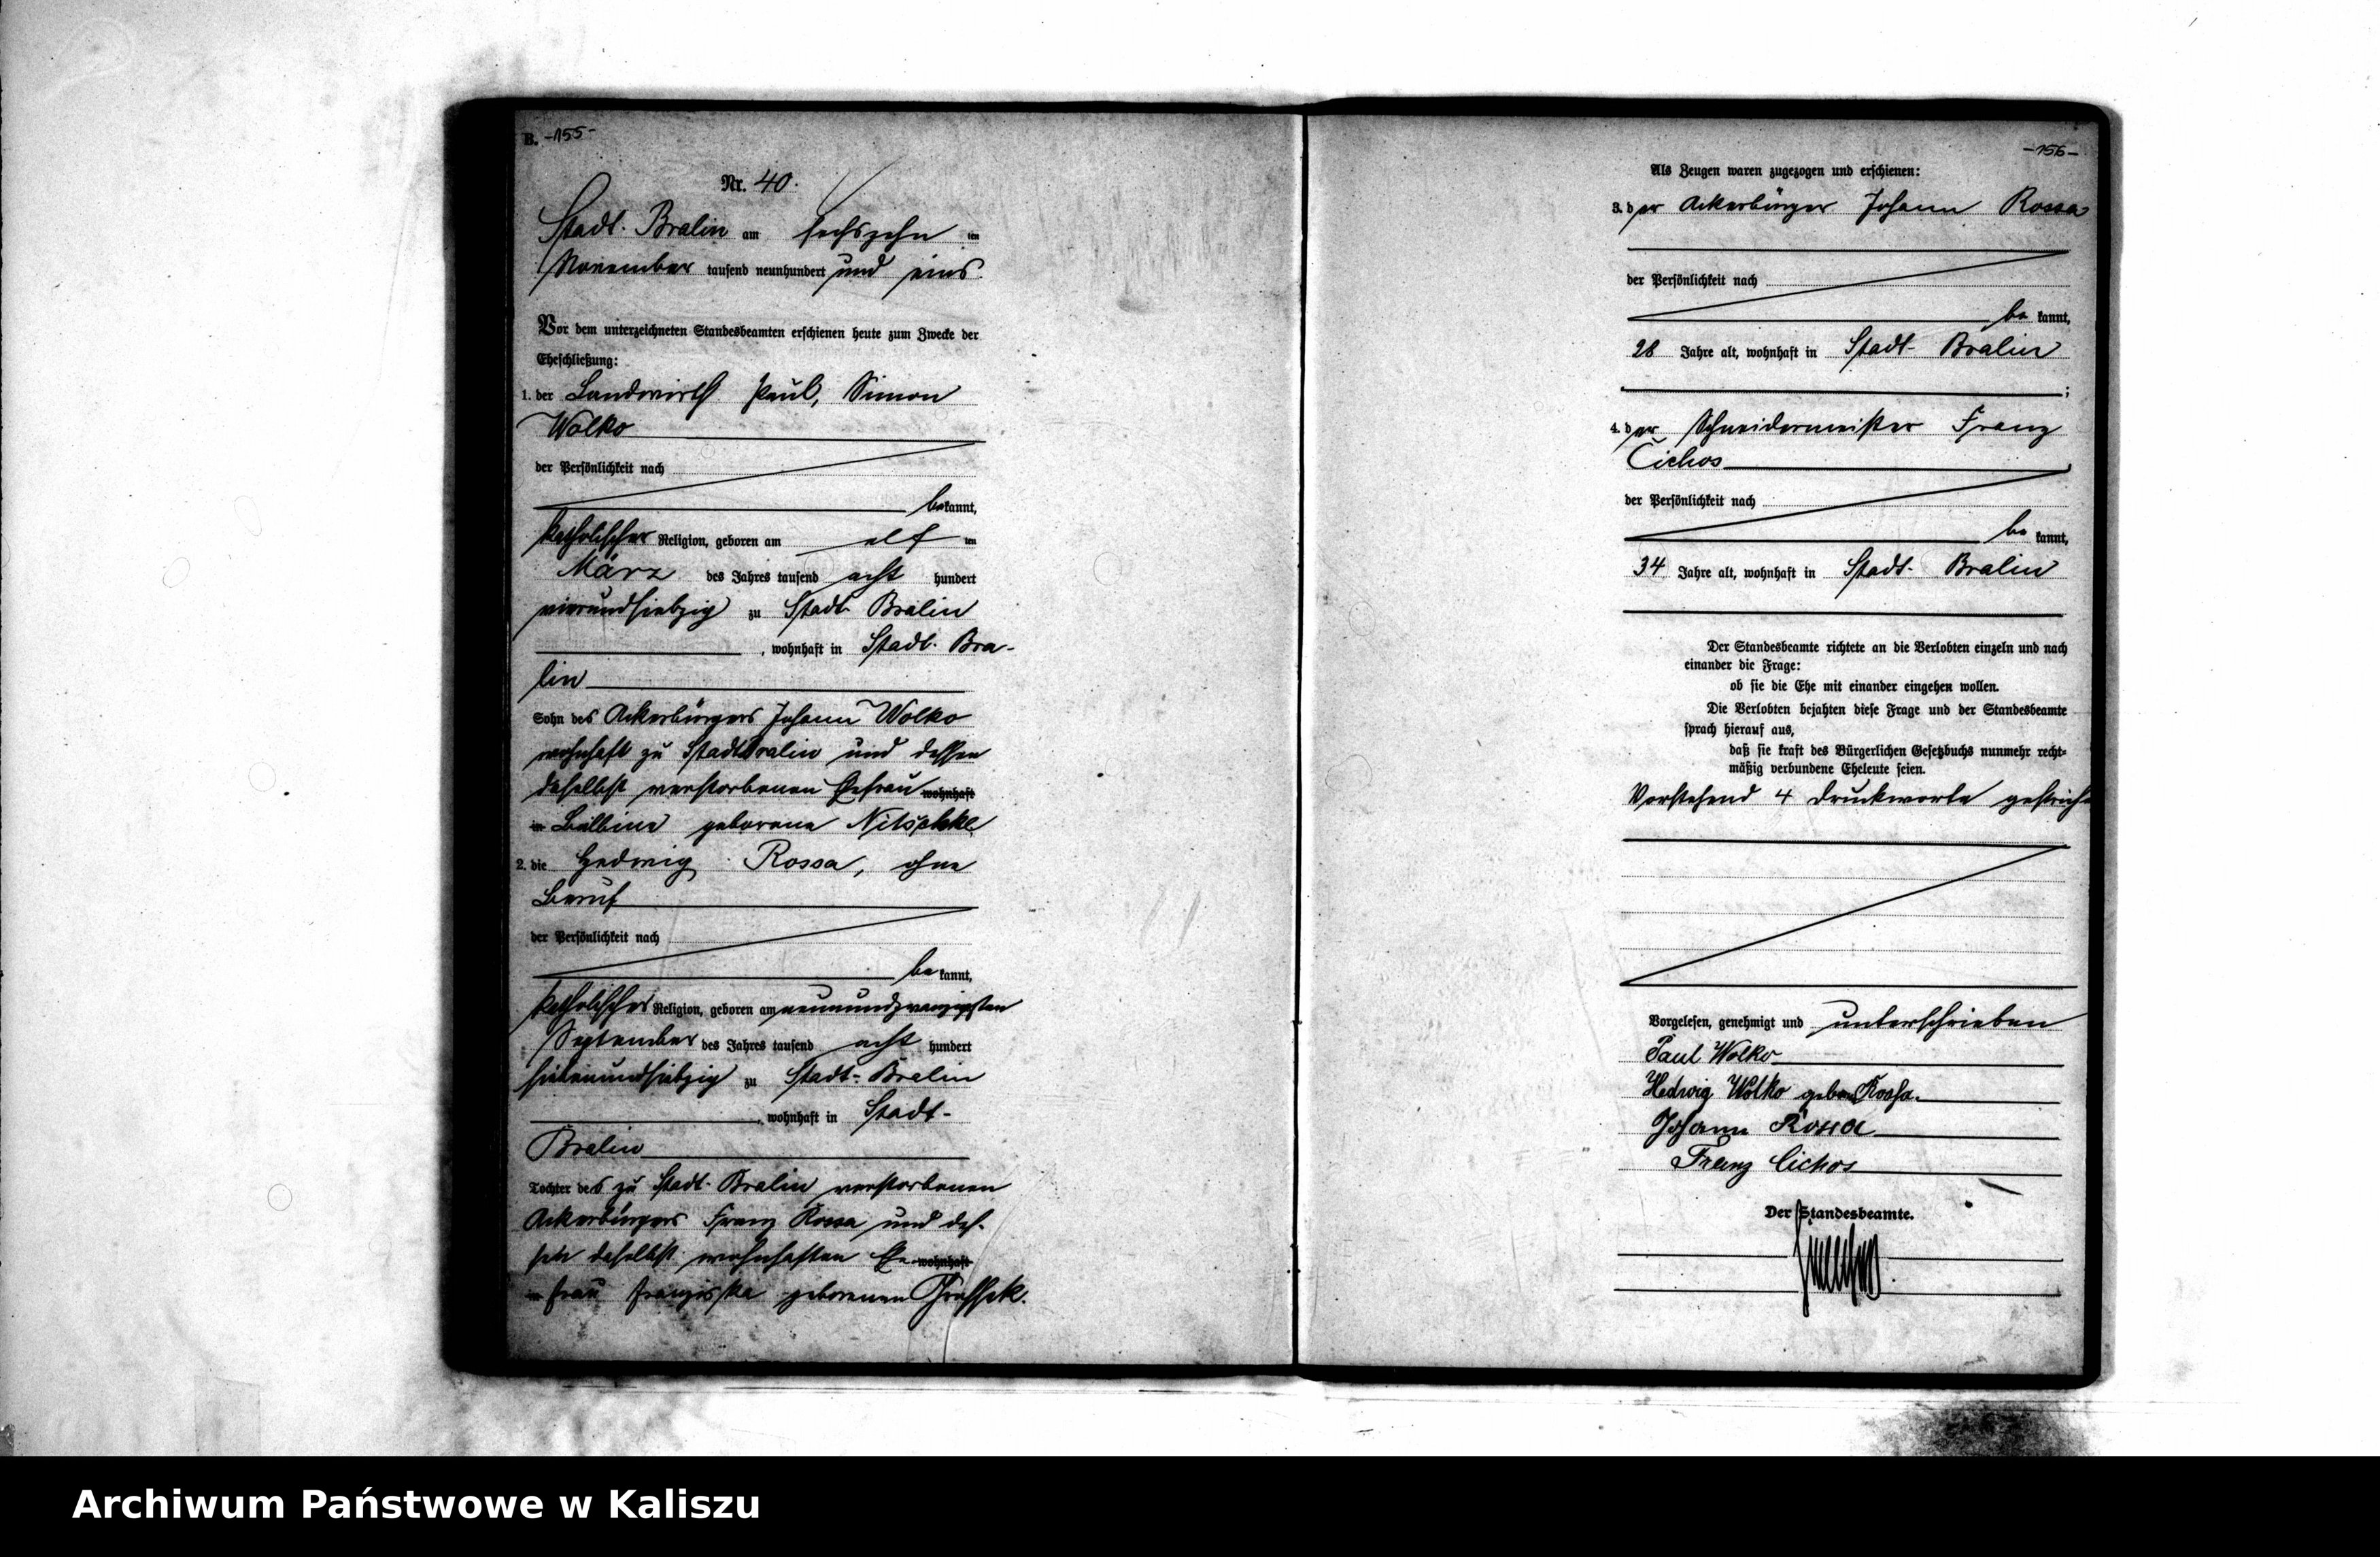 B. -155-
Nr. 40.
Stadt-Bralin am sechszehn ten
November tausend neunhundert und eins.
Vor dem unterzeichneten Standesbeamten erschienen heute zum Zwecke der
Eheschließung:
1. der Landwirth Paul, Simon
Wolko
der Persönlichkeit nach
bekannt,
katholischer Religion, geboren am elf ten
März des Jahres tausend acht hundert
vierundsiebzig zu Stadt-Bralin
, wohnhaft in Stadt-Bra-
lin
Sohn des Ackerbürgers Johann Wolko
wohnhaft zu Stadtbralin und dessen
daselbst verstorbenen Ehefrau wohnhaft
in Balbina geborene Nitschke
2. die Hedwig Rossa, ohne
Beruf
der Persönlichkeit nach
bekannt,
katholischer Religion, geboren am neunundzwanzigsten
September des Jahres tausend acht hundert
siebenundsiebzig zu Stadt-Bralin
, wohnhaft in Stadt-
Bralin
Tochter des zu Stadt-Bralin verstorbenen
Ackerbürgers Franz Rossa und des-
sen daselbst wohnhaften Ehe- wohnhaft
in frau Franziska geborenen
-156-
Als Zeugen waren zugezogen und erschienen:
3. der Ackerbürger Johann Rossa
der Persönlichkeit nach
bekannt,
28 Jahre alt, wohnhaft in Stadt-Bralin
;
4. der Schneidermeister Franz
Cichos
der Persönlichkeit nach
bekannt,
34 Jahre alt, wohnhaft in Stadt-Bralin
Der Standesbeamte richtete an die Verlobten einzeln und nach
einander die Frage:
ob sie die Ehe mit einander eingehen wollen.
Die Verlobten bejahten diese Frage und der Standesbeamte
sprach hierauf aus,
daß sie kraft des Bürgerlichen Gesetzbuchs nunmehr recht-
mäßig verbundene Eheleute seien.
Vorstehend 4 Druckworte gestrichen
Vorgelesen, genehmigt und unterschrieben
Paul Wolko
Hedwig Wolko geborne Rossa.
Johann Rossa
Franz Cichos
Der Standesbeamte.
Archiwum Państwowe w Kaliszu